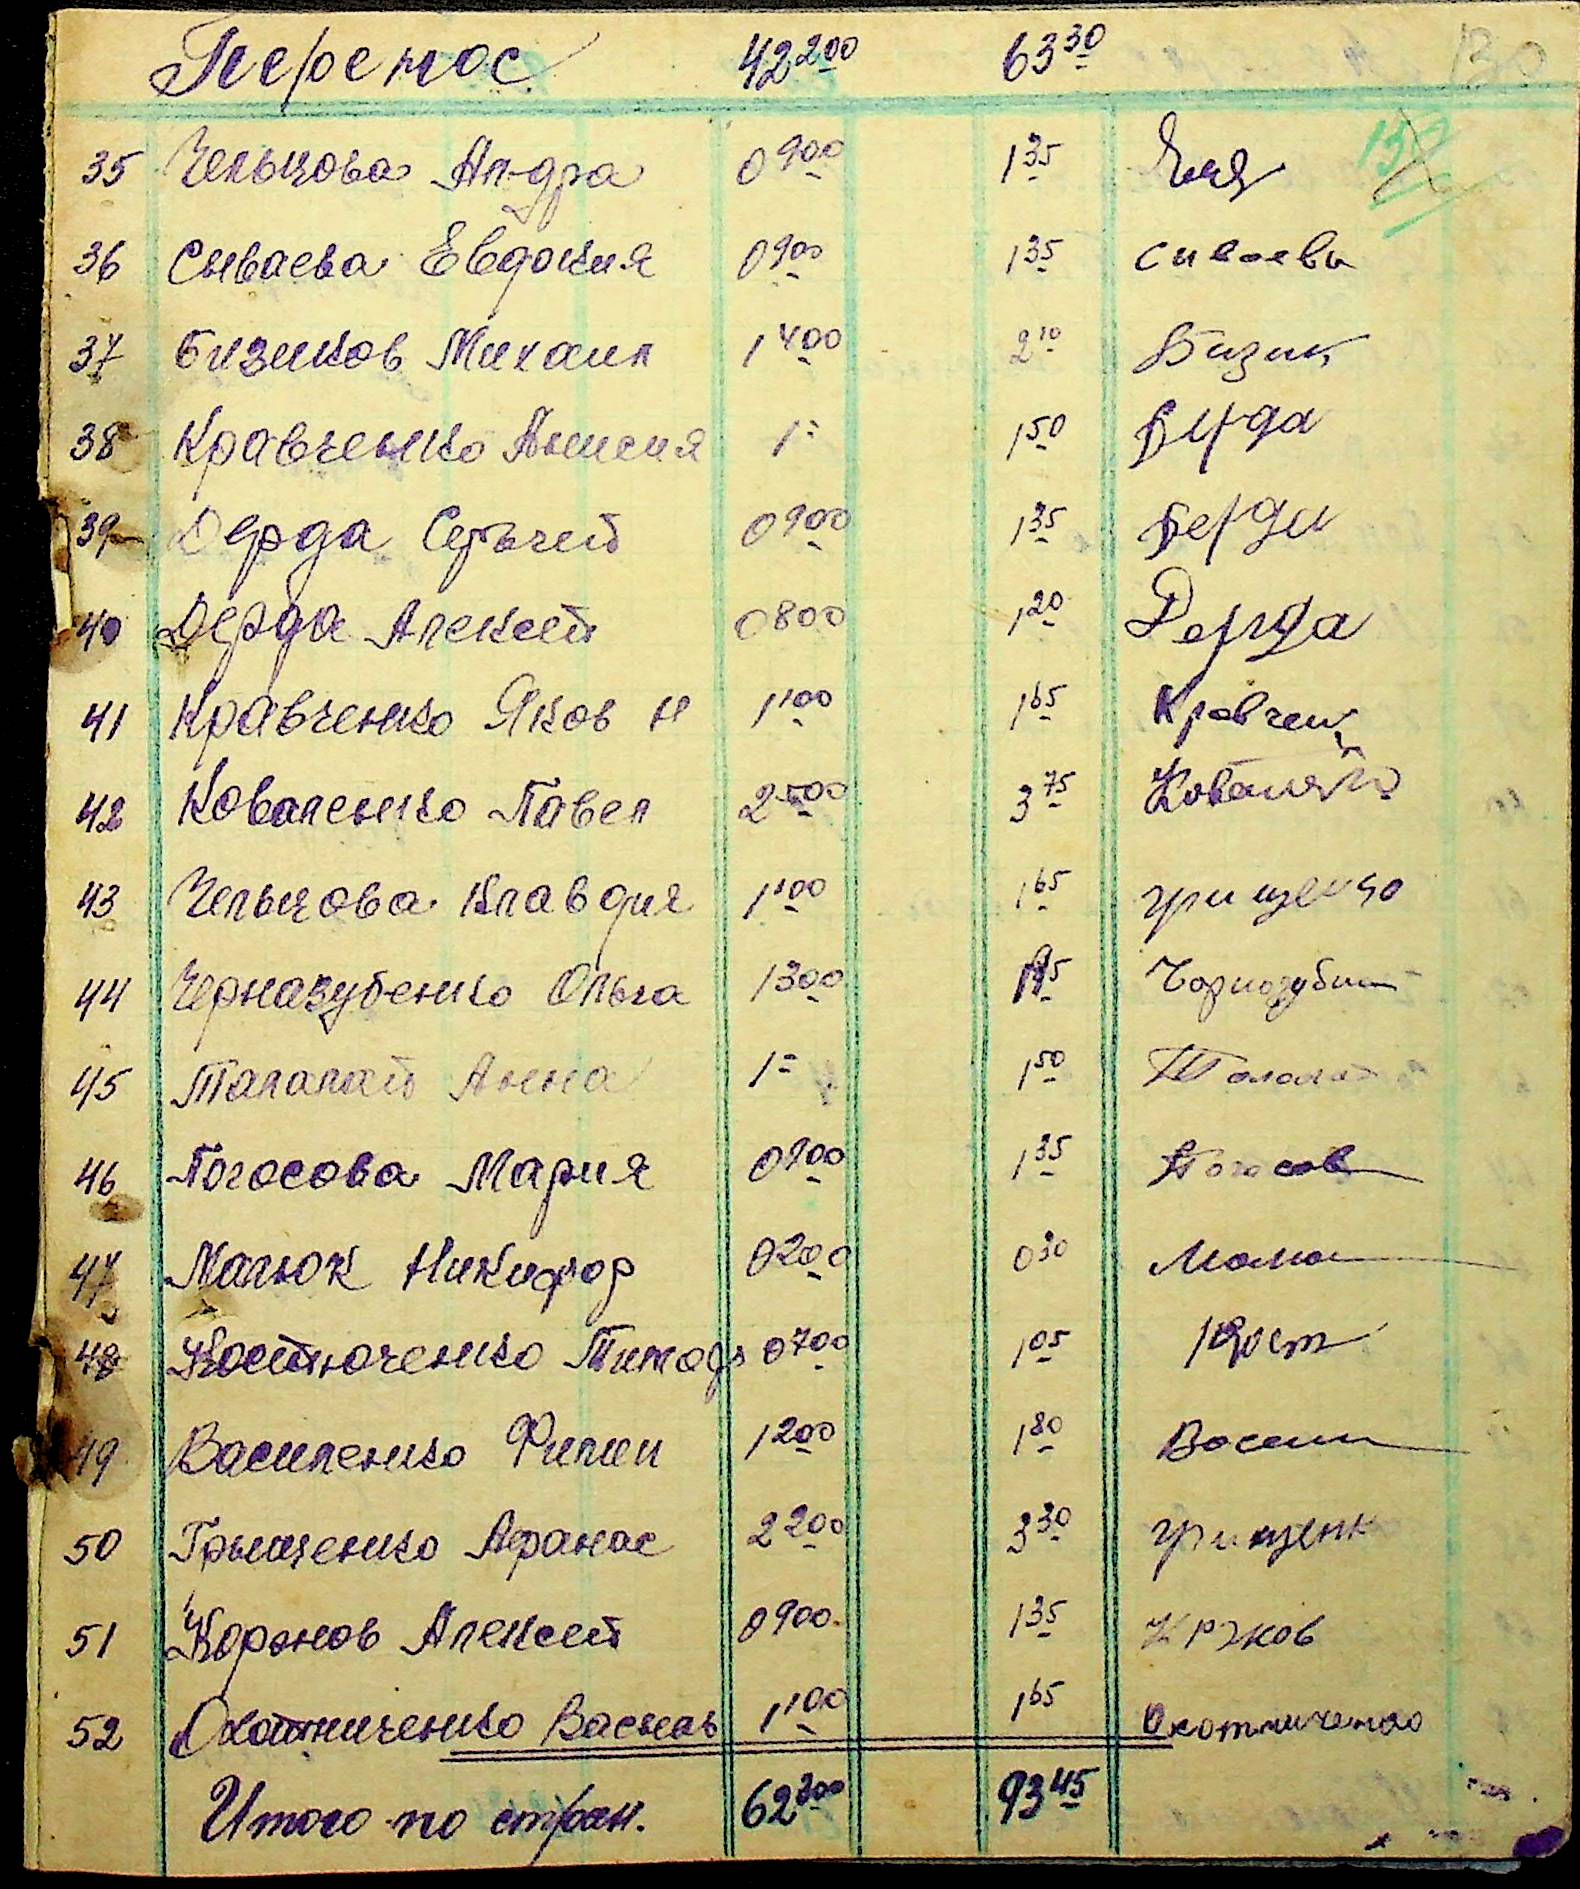 Перенос 42 200 63 30 130
35 Чельцова Ал-дра 0 900 1 35
36 Сываева Евдокия 0 900 1 35 Сиваева
37 Бизиков Михаил 1 400 2 10 Бизик
38 Кравченко Анисия 1 = 1 50
39 Дерда Сергей 0 900 1 35 Дерди
40 Дерда Алексей 0 800 1 20 Дерда
41 Кравченко Яков Н 1 100 1 65 Кравчен
42 Коваленко Павел 2 500 3 75
43 Чельцова Клавдия 1 100 1 65 Грищенко
44 Черназубенко Ольга 1 300 1 95
45 Талалай Анна 1 = 1 50 Талалай
46 Погосова Мария 0 900 1 35 Погосов
47 Малюк Никифор 0 200 0 30
48 Костюченко Тимофе 0 700 1 05 Кост
49 Василенко Филип 1 200 1 80 Васил
50 Грыщенко Афанас 2 200 3 30 Грищенк
51 Коржов Алексей 0 900 1 35 Кржов
52 Охотниченко Василь 1 100 1 65 Охотниченко
Итого по стран. 62 300 93 45